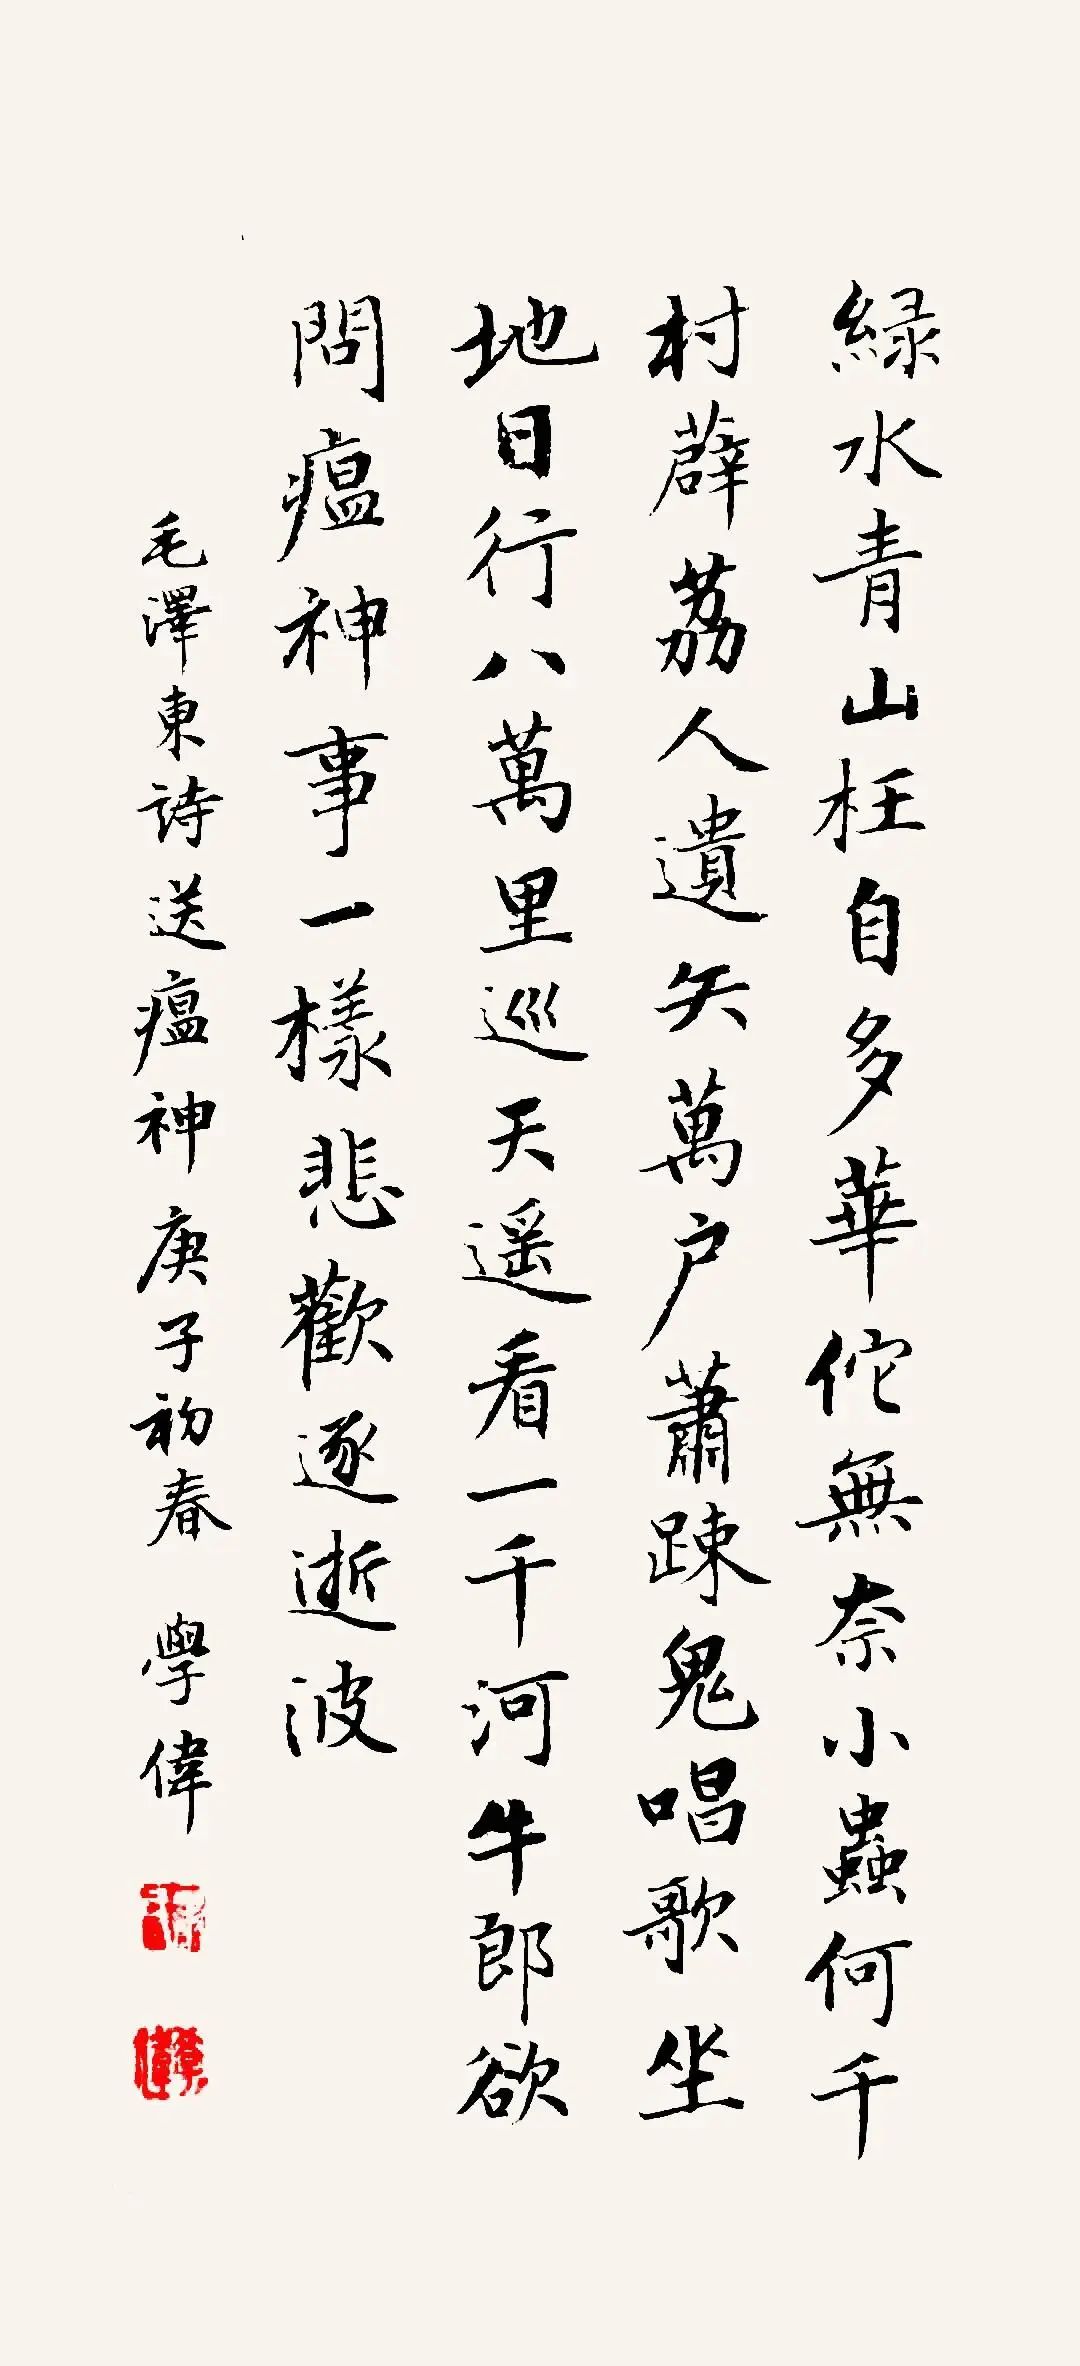 緑水青山枉自多華佗無奈小蟲何千
村薜荔人遺矢萬户蕭踈鬼唱歌坐
地日行八萬里巡天遥看一千河牛郎欲
問瘟神事一樣悲歡逐逝波
毛澤東詩送瘟神庚子初春 學偉